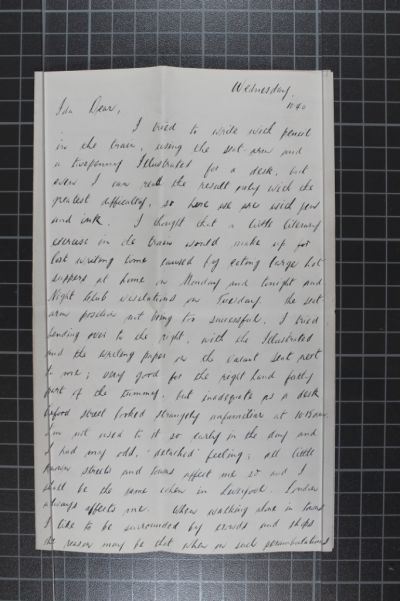 Wednesday.
1140
Ida Dear,
I tried to write with pencil
in the train, using the seat-arm and
a twopenny Illustrated for a desk, but
even I can read the result only with the
greatest difficulty, so here we are with pen
and ink. I thought that a little literary
exercise in the train would make up for
lost writing time caused by eating large hot
suppers at home on Monday and tonight and
Night Club visitations on Tuesday. The seat
arm position not being too successful, I tried
bending over to the right, with the Illustrated
and the writing paper on the vacant seat next
to me; very good for the right hand fatty
part of the tummy, but inadequate as a desk.
street looked strangely unfamiliar at 10.15 am.
I'm not used to it so early in the day and
I had my odd, "detached" feeling; all little
narrow streets and towns affect me so and I
shall be the same when in Liverpool. London
always affects me. When walking alone in towns
I like to be surrounded by crowds and shops
the reason may be that when on such perambulations